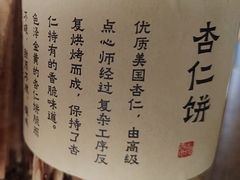 杏仁饼
优质美国杏仁，由高级
点心师经过复杂工序反
复烘烤而成，保持了杏
仁特有的香脆味道。
色泽金黄的杏仁饼脆而